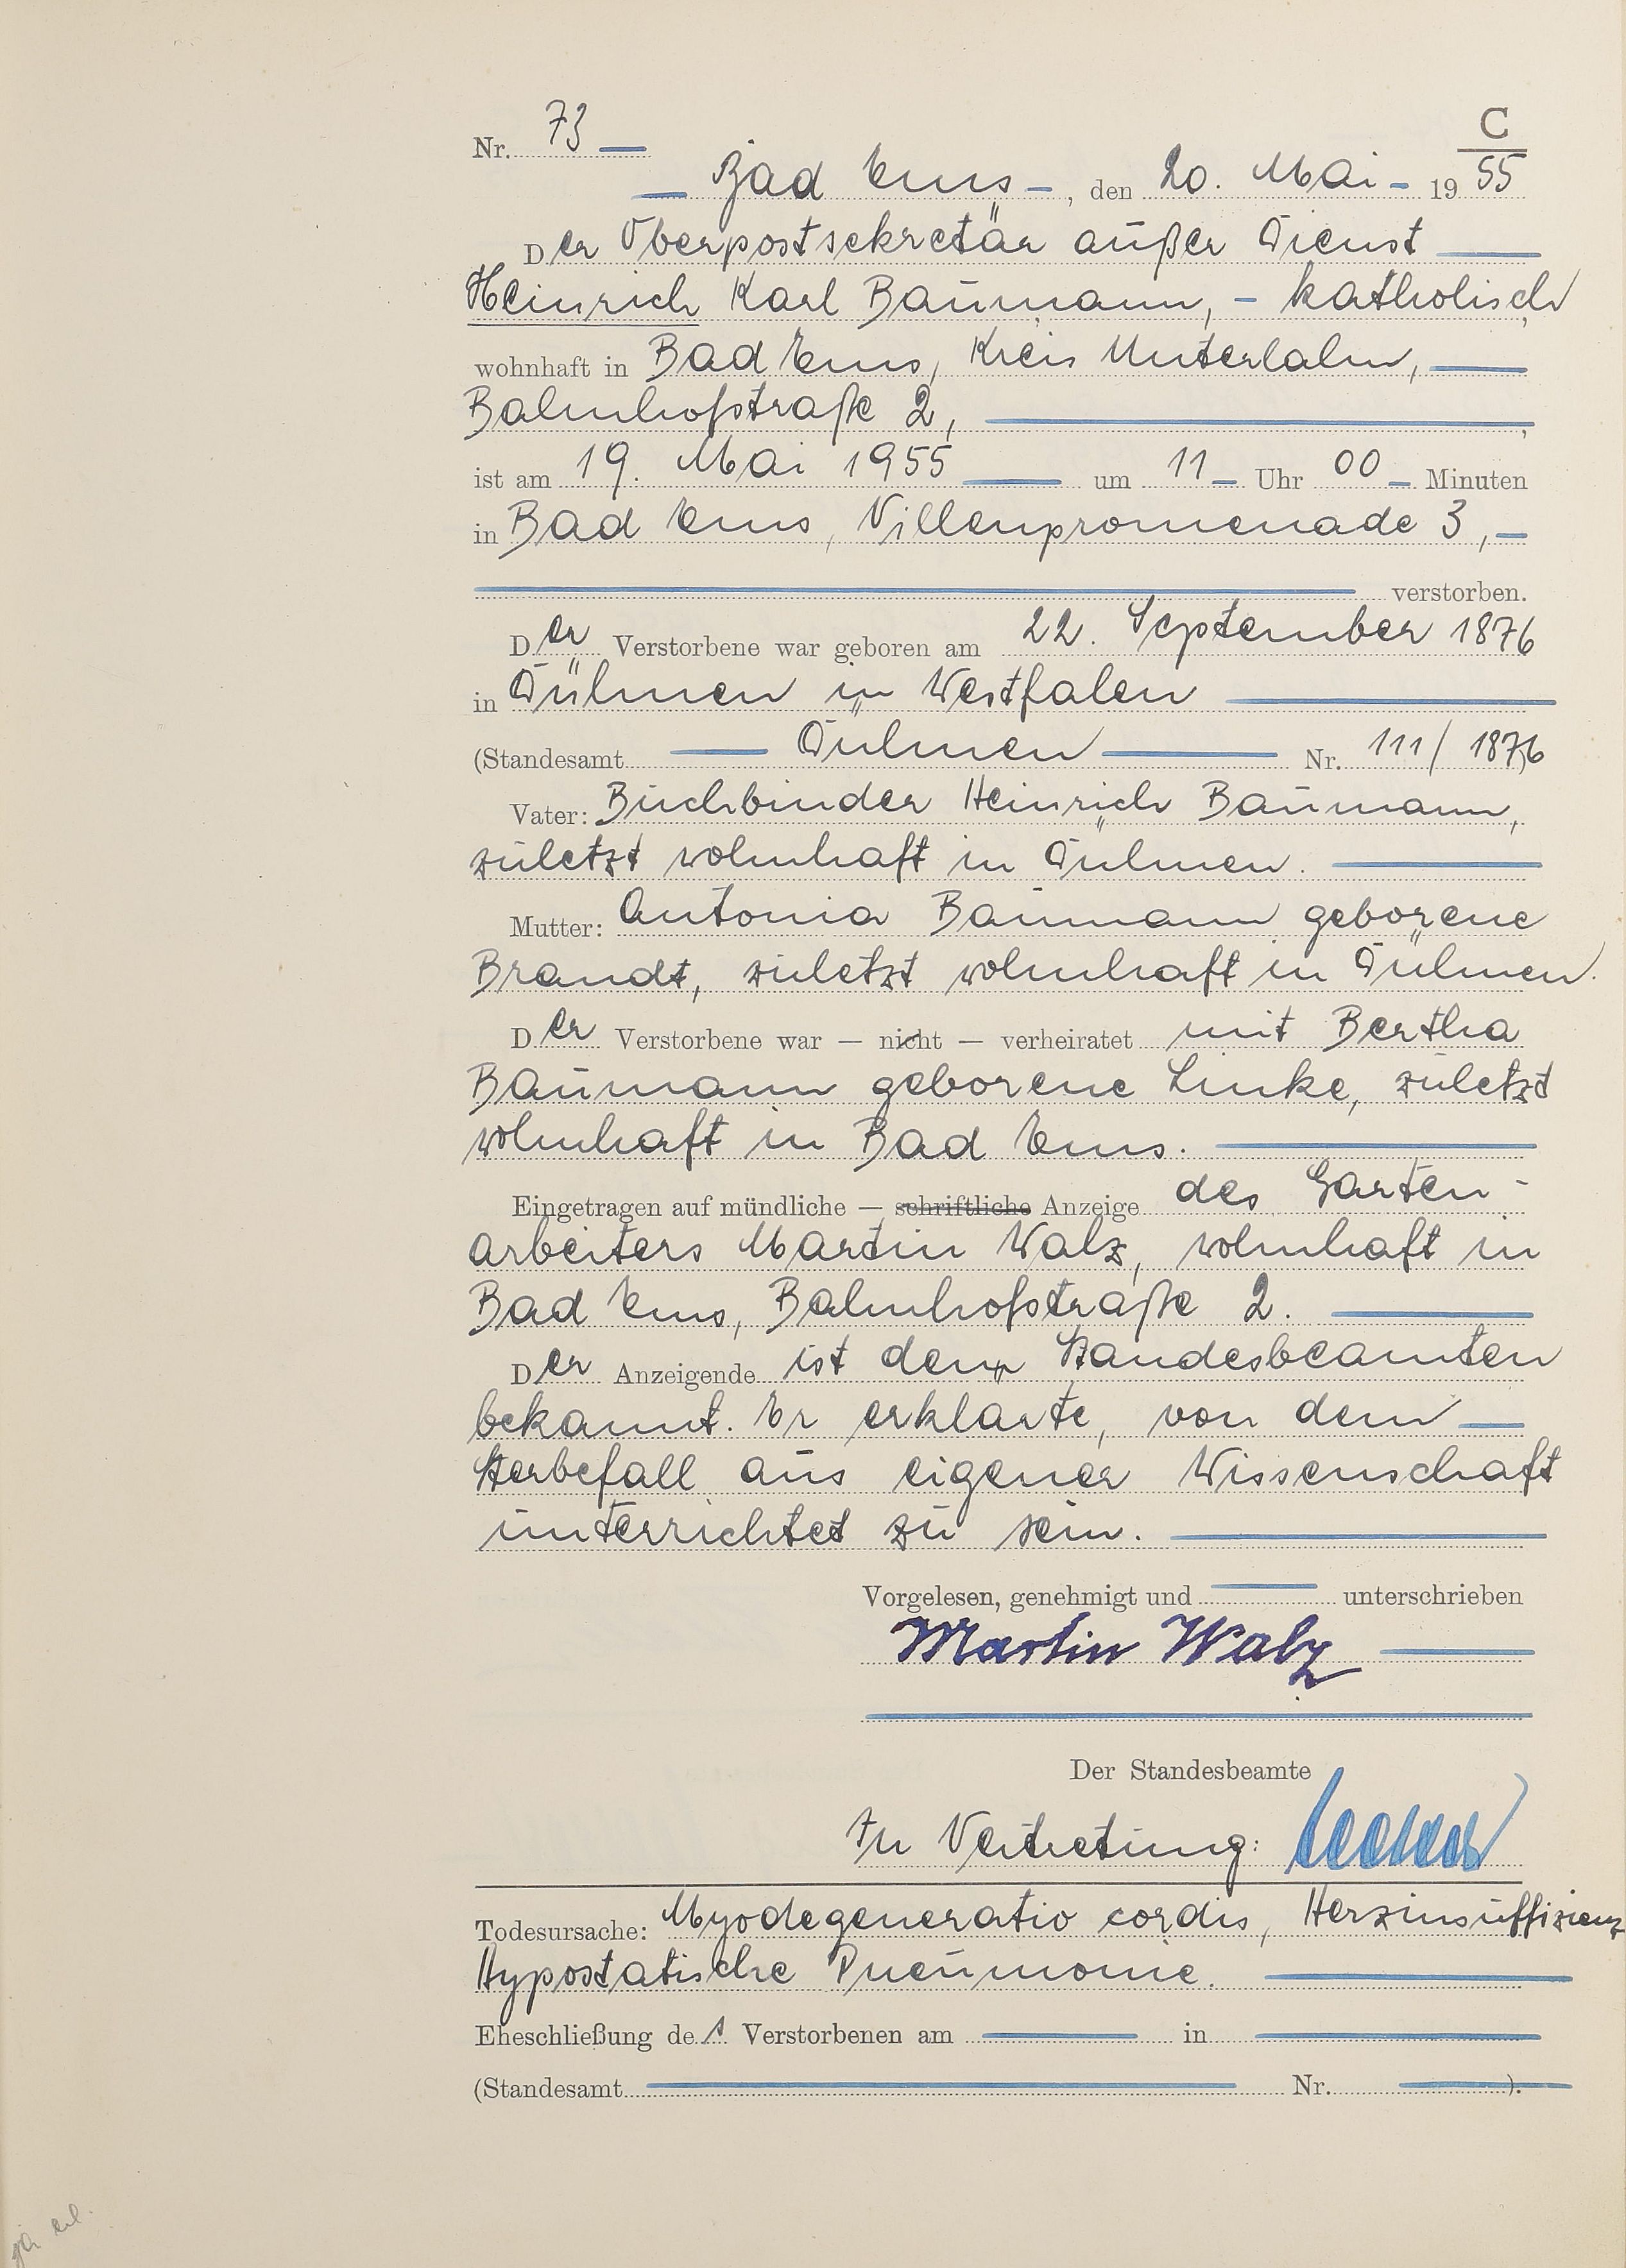 C
Nr. 73
Bad Ems, den 20. Mai 1955
Der Oberpostsekretär außer Dienst
Heinrich Karl Baumann, - katholisch,
wohnhaft in Bad Ems, Kreis Unterlahn,
Bahnhofstraße 2,
ist am 19. Mai 1955 um 11 Uhr 00 Minuten
in Bad Ems, Villenpromenade 3,
verstorben.
Der Verstorbene war geboren am 22. September 1876
in Dülmen in Westfalen
(Standesamt Dülmen Nr. 111/1876)
Vater: Buchbinder Heinrich Baumann,
zuletzt wohnhaft in Dülmen.
Mutter: Antonia Baumann geborene
Brandt, zuletzt wohnhaft in Dülmen.
Der Verstorbene war — nicht — verheiratet mit Bertha
Baumann geborene Linke, zuletzt
wohnhaft in Bad Ems.
Eingetragen auf mündliche — schriftliche Anzeige des Garten-
arbeiters Martin Walz, wohnhaft in
Bad Ems, Bahnhofstraße 2.
Der Anzeigende ist dem Standesbeamten
bekannt. Er erklärte, von dem
Sterbefall aus eigener Wissenschaft
unterrichtet zu sein.
Vorgelesen, genehmigt und unterschrieben
Martin Walz
Der Standesbeamte
In Vertretung:
Todesursache: Myodegeneratio cordis, Herzinsuffizienz
Hypostatische Pneumonie.
Eheschließung des Verstorbenen am in
(Standesamt Nr. ).